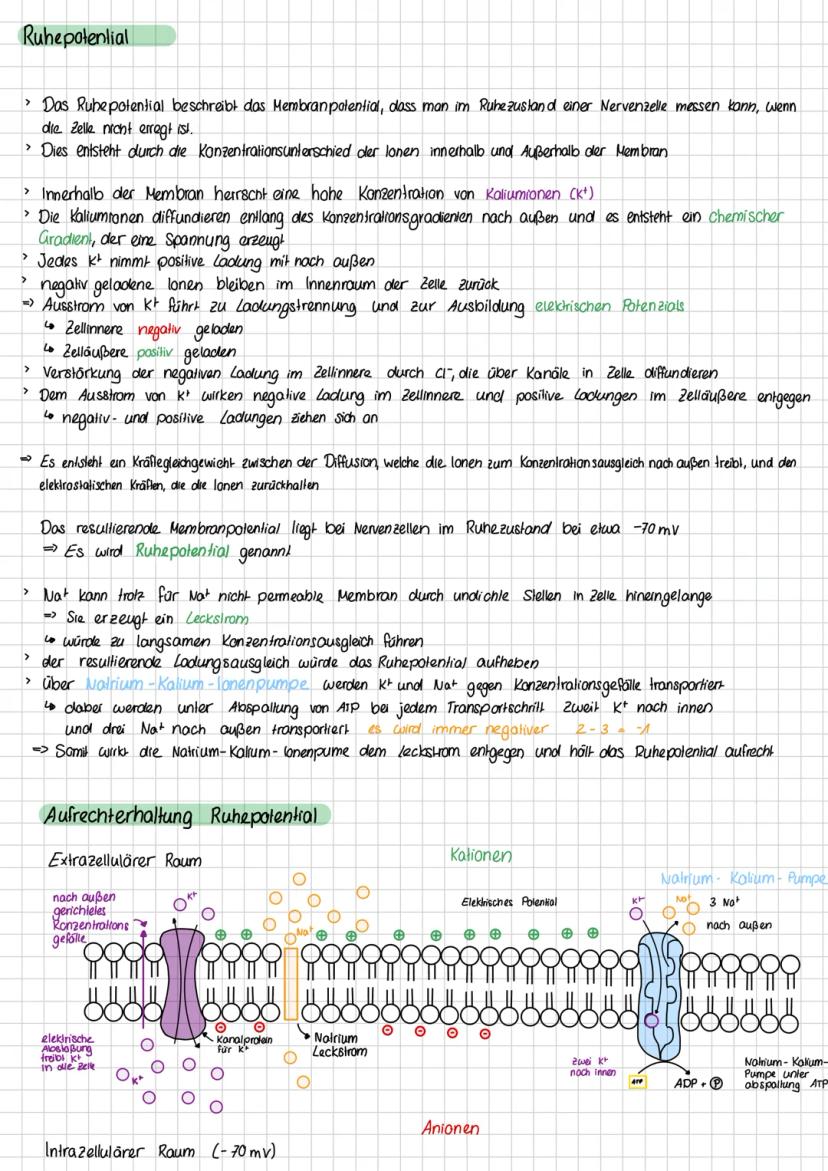 Ruhepotential
> Das Ruhepotential beschreibt das Membranpotential, dass man im Ruhezustand einer Nervenzelle messen kann, wenn
die Zelle nicht erregt ist.
> Dies entsteht durch die Konzentrationsunterschied der Ionen innerhalb und Außerhalb der Membran
> Innerhalb der Membran herrscht eine hohe Konzentration von Kaliumionen (K⁺)
> Die Kaliumionen diffundieren entlang des Konzentrationsgradienten nach außen und es entsteht ein chemischer
Gradient, der eine Spannung erzeugt
> Jedes K⁺ nimmt positive Ladung mit nach außen
> negativ geladene Ionen bleiben im Innenraum der Zelle zurück
⇒ Ausstrom von K⁺ führt zu Ladungstrennung und zur Ausbildung elektrischen Potenzials
↳ Zellinnere negativ geladen
↳ Zelläußere positiv geladen
> Verstörkung der negativen Ladung im Zellinnere durch Cl⁻, die über Kanäle in Zelle diffundieren
> Dem Ausstrom von K⁺ wirken negative Ladung im Zellinnere und positive Ladungen im Zelläußere entgegen
↳ negativ- und positive Ladungen ziehen sich an
⇒ Es entsteht ein Kräftegleichgewicht zwischen der Diffusion, welche die Ionen zum Konzentrationsausgleich nach außen treibt, und den
elektrostatischen Kräften, die die Ionen zurückhalten
Das resultierende Membranpotential liegt bei Nervenzellen im Ruhezustand bei etwa -70 mV
⇒ Es wird Ruhepotential genannt
> Na⁺ kann trotz für Na⁺ nicht permeable Membran durch undichte Stellen in Zelle hineingelange
⇒ Sie erzeugt ein Leckstrom
↳ würde zu langsamen Konzentrationsausgleich führen
> der resultierende Ladungsausgleich würde das Ruhepotential aufheben
> über Natrium-Kalium-Ionenpumpe werden K⁺ und Na⁺ gegen Konzentrationsgefälle transportiert
↳ dabei werden unter Abspaltung von ATP bei jedem Transportschritt zweit K⁺ nach innen
und drei Na⁺ nach außen transportiert es wird immer negativer 2 - 3 = -1
⇒ Somit wirkt die Natrium-Kalium-Ionenpume dem Leckstrom entgegen und hält das Ruhepotential aufrecht
Aufrechterhaltung Ruhepotential
Extrazellulärer Raum
Kationen
Natrium-Kalium-Pumpe
nach außen
gerichtetes
Konzentrations
gefälle
K⁺
Na⁺
Elektrisches Potential
K⁺
Na⁺
3 Na⁺
nach außen
elektrische
Abstoßung
treibt K⁺
in die Zelle
K⁺
Kanalprotein
für K⁺
Natrium
Leckstrom
zwei K⁺
nach innen
ATP
ADP + P
Natrium-Kalium-
Pumpe unter
abspaltung ATP
Anionen
Intrazellulärer Raum (-70 mV)